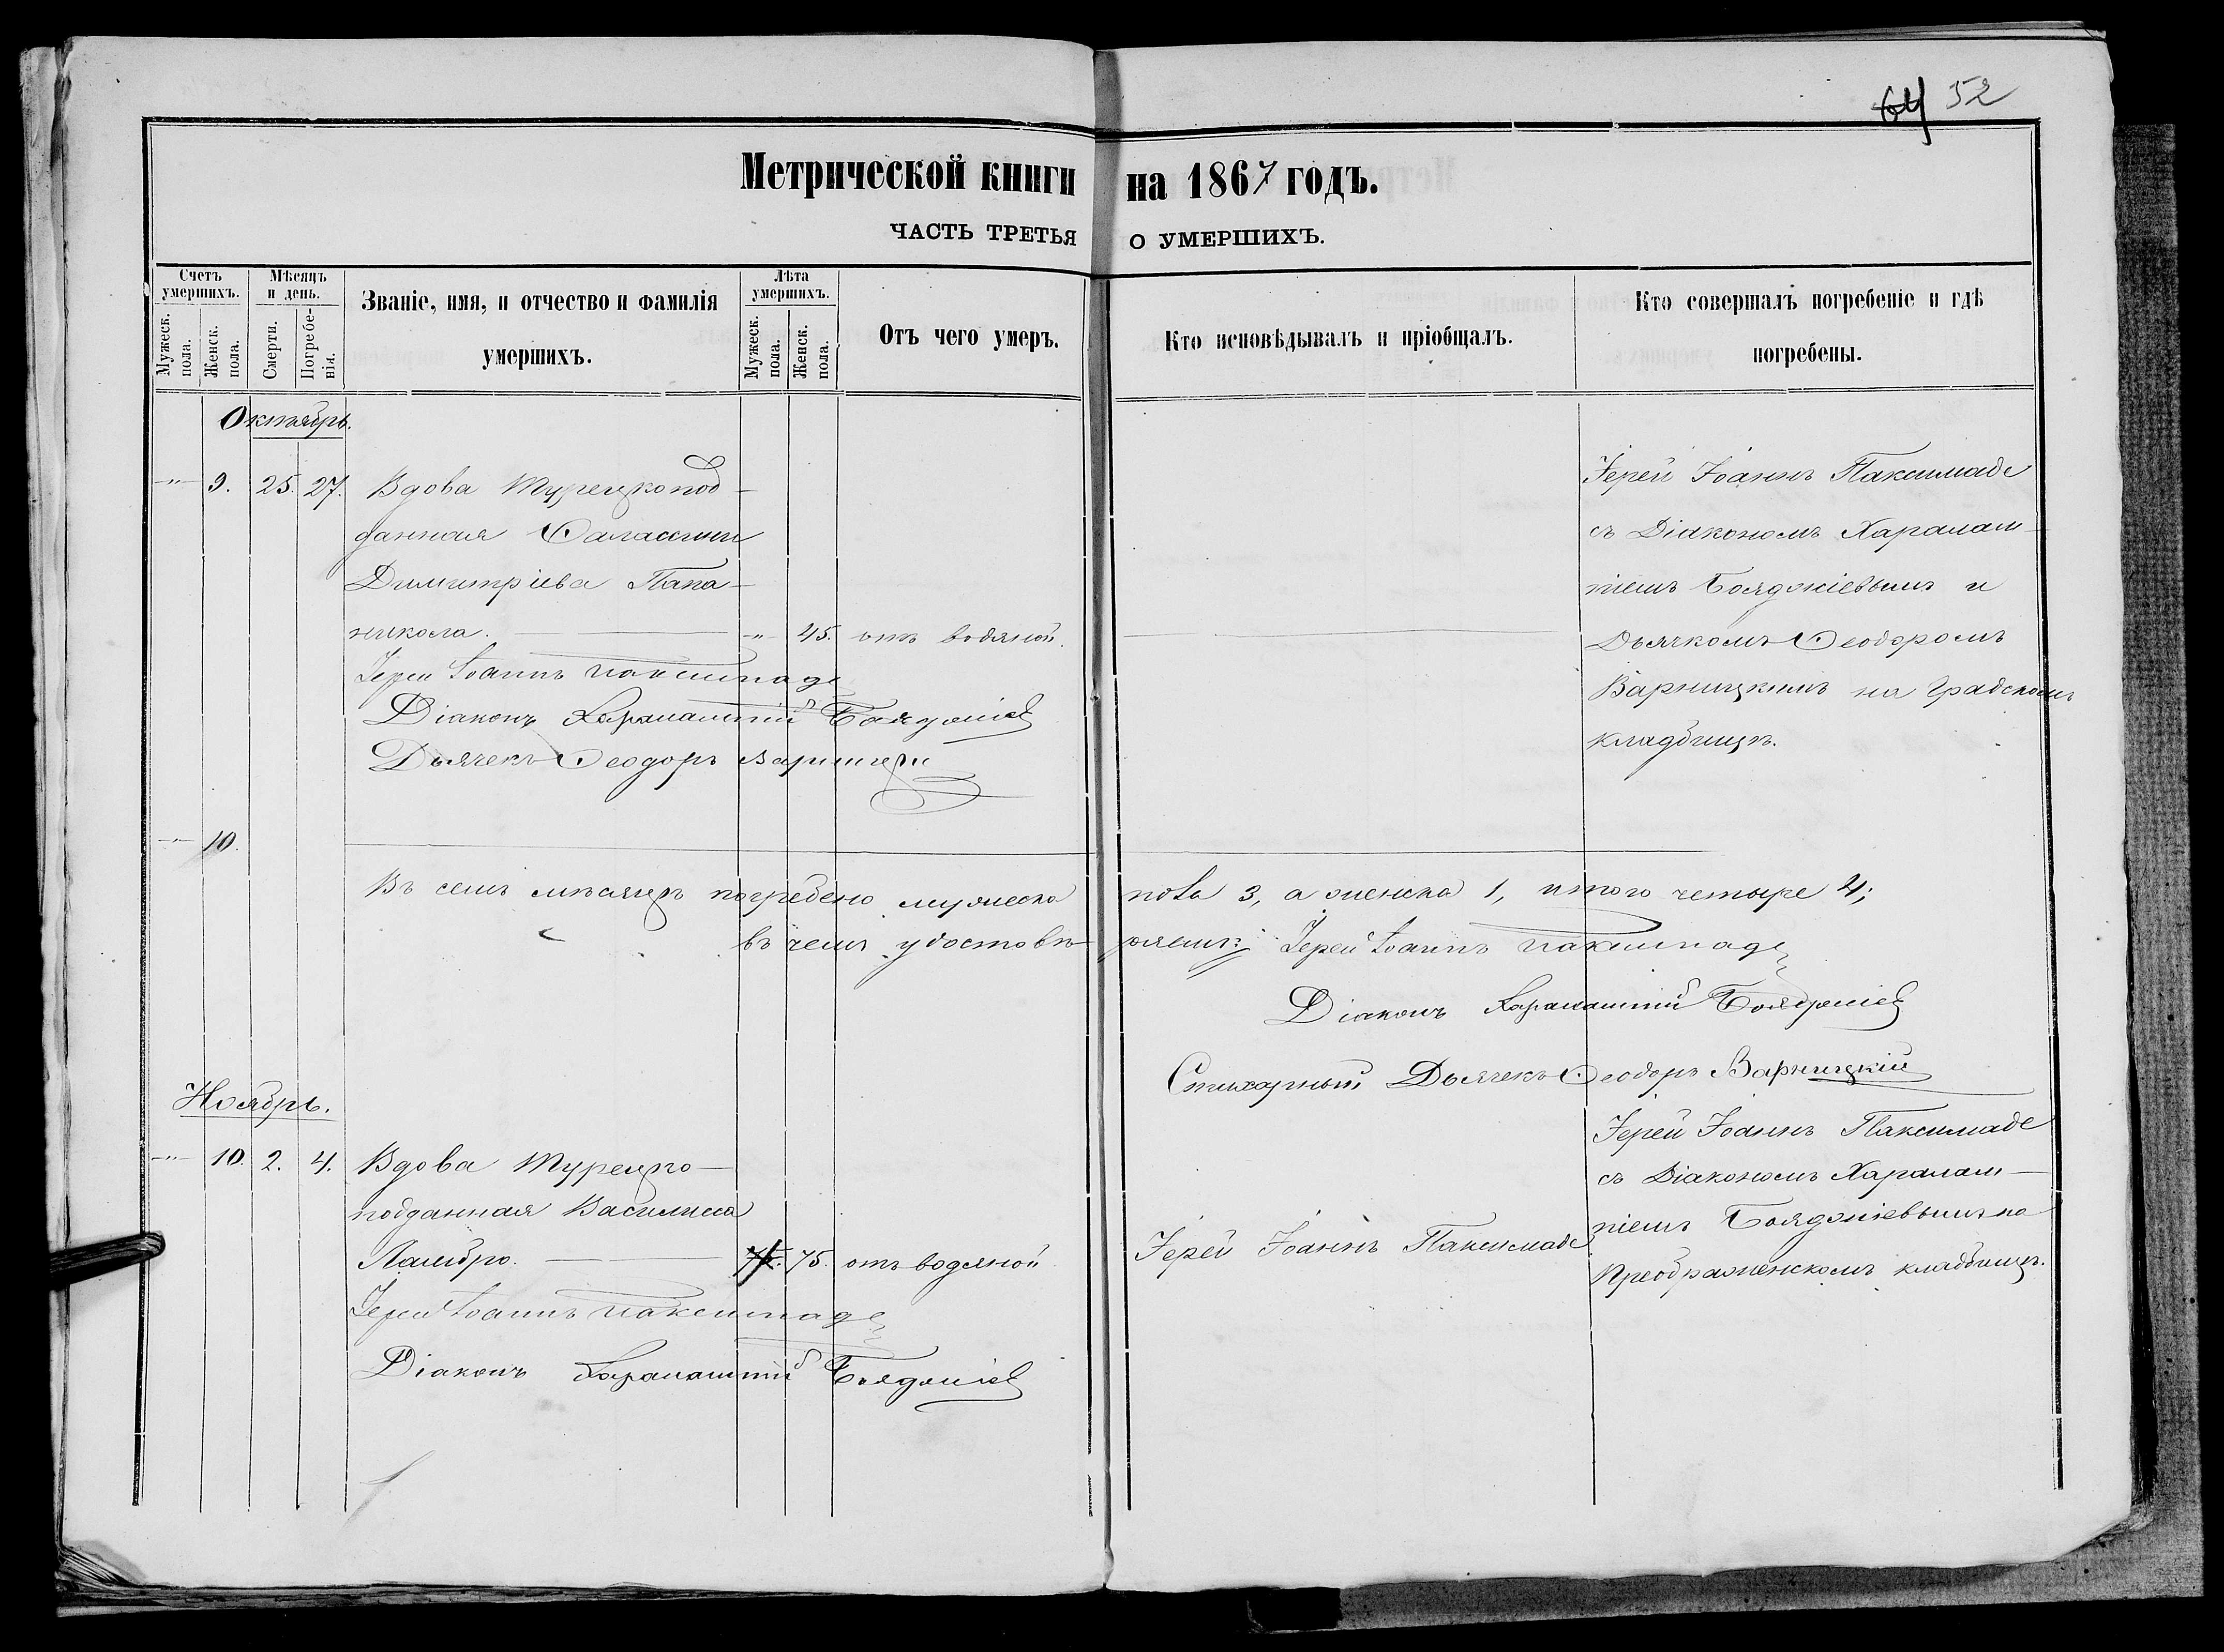 64 52
Метрической книги на 1867 годъ.
ЧАСТЬ ТРЕТЬЯ О УМЕРШИХЪ.
Счетъ умершихъ.
Мужеск. пола.
Женск. пола.
Мѣсяцъ и день.
Смерти.
Погребенія.
Званіе, имя, и отчество и фамилія умершихъ.
Лѣта умершихъ.
Мужеск. пола.
Женск. пола.
Отъ чего умеръ.
Кто исповѣдывалъ и пріобщалъ.
Кто совершалъ погребеніе и гдѣ погребены.
Октябрь.
-"- 9. 25. 27. Вдова Турецкопод-
данная Ѳалассини
Димитріева Папа-
никола. -"- 45. отъ водяной.
Іерей Іоаннъ Паксимаде
съ Діакономъ Харалам-
піемъ Бояджіевымъ и
Дьячкомъ Ѳеодоромъ
Варницкимъ на Градскомъ
кладбищѣ.
Іерей Іоаннъ Паксимаде
Діаконъ Харалампій Бояджіев
Дьячекъ Ѳеодоръ Варницкій
-"- 10.
Въ семъ мѣсяцѣ погребено мужеска пола 3, а женска 1, итого четыре 4;
въ чемъ удостовѣряемъ: Іерей Іоаннъ Паксимаде
Діаконъ Харалампій Бояджіев
Стихарный Дьячекъ Ѳеодоръ Варницкій
Ноябрь.
-"- 10. 2. 4. Вдова Турецко-
подданная Василиса
Ламбро. 75. 75. отъ водяной
Іерей Іоаннъ Паксимаде
Іерей Іоаннъ Паксимаде
съ Діакономъ Харалам-
піемъ Бояджіевымъ на
Преображенскомъ кладбищѣ.
Іерей Іоаннъ Паксимаде
Діаконъ Харалампій Бояджіев